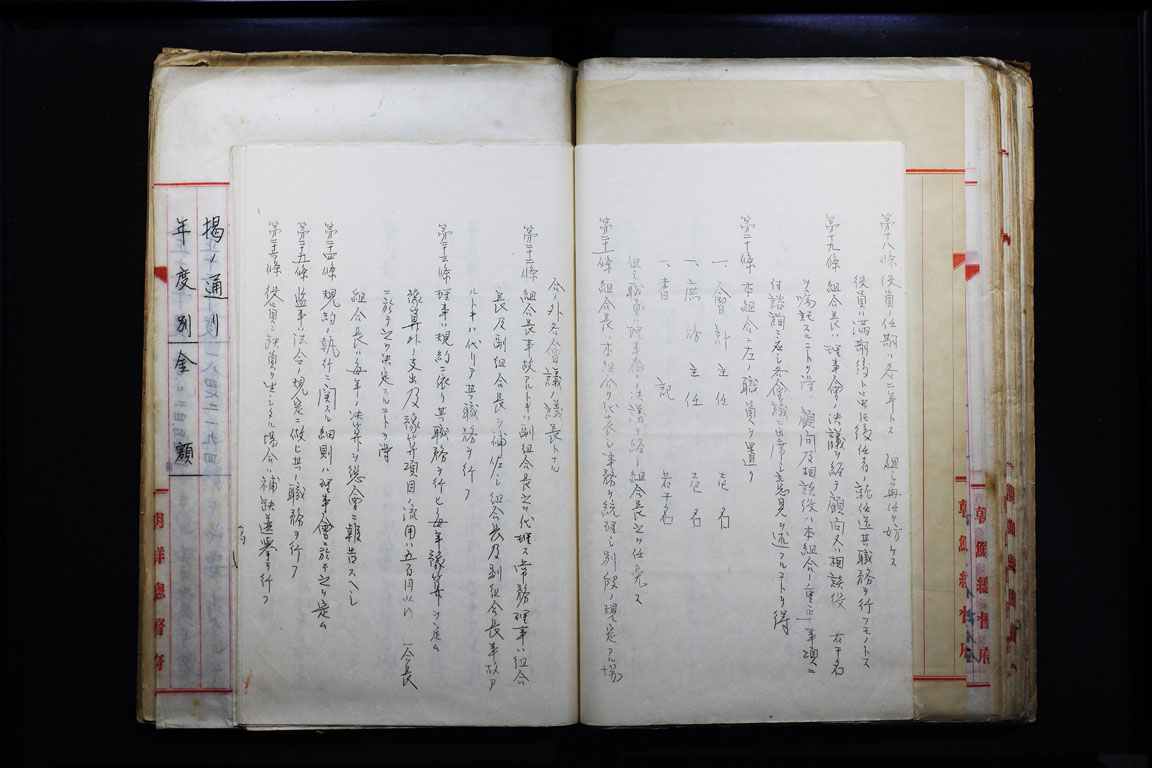 第十八條 役員ノ任期ハ各二年トス 但シ再任ヲ妨ケス
役員ハ満期後ト雖モ後任者ノ就任迄其職務ヲ行フモノトス
第十九條 組合長ハ理事會ノ決議ヲ経テ顧問又ハ相談役 若干名
ヲ嘱託スルコトヲ得 顧問及相談役ハ本組合ノ重要事項ニ
付諮詢ニ応シ各會議ニ出席シ意見ヲ述フルコトヲ得
第二十條 本組合ニ左ノ職員ヲ置ク
一、會計主任 壱名
一、庶務主任 壱名
一、書記 若干名
但シ職員ハ理事會ノ決議ヲ経テ組合長之ヲ任免ス
第二十一條 組合長ハ本組合ヲ代表シ事務ヲ統理シ別段ノ規定アル場
合ノ外各會議ノ議長トナル
第二十二條 組合長事故アルトキハ副組合長之ヲ代理ス常務理事ハ組合
長及副組合長ヲ補佐シ組合長及副組合長事故ア
ルトキハ代リテ其ノ職務ヲ行フ
第二十三條 理事ハ規約ニ依リ其ノ職務ヲ行ヒ毎年豫算ヲ定ム
豫算外ノ支出及豫算項目ノ流用ハ五百円以内 合長
ニ於テ之ヲ決定スルコトヲ得
組合長ハ毎年ノ決算ヲ総會ニ報告スヘシ
第二十四條 規約ノ執行ニ関スル細則ハ理事會ニ於テ之ヲ定ム
第二十五條 監事ハ法令ノ規定ニ倣ヒ其ノ職務ヲ行フ
第二十六條 役員ニ缺員ヲ生シタル場合ハ補缺選擧ヲ行フ
揭ノ通リ
年度別金額
朝鮮總督府
朝鮮總督府
朝鮮總督府